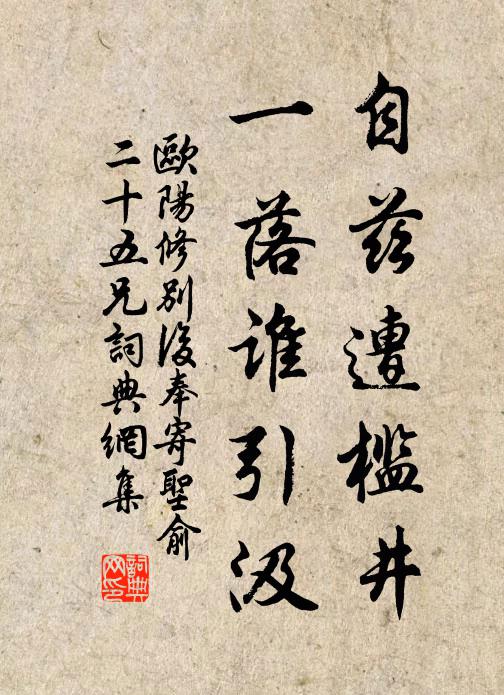 自茲遭檻井
一落誰引汲
歐陽修別後奉寄聖俞
二十五兄詞典網集
詞典網印